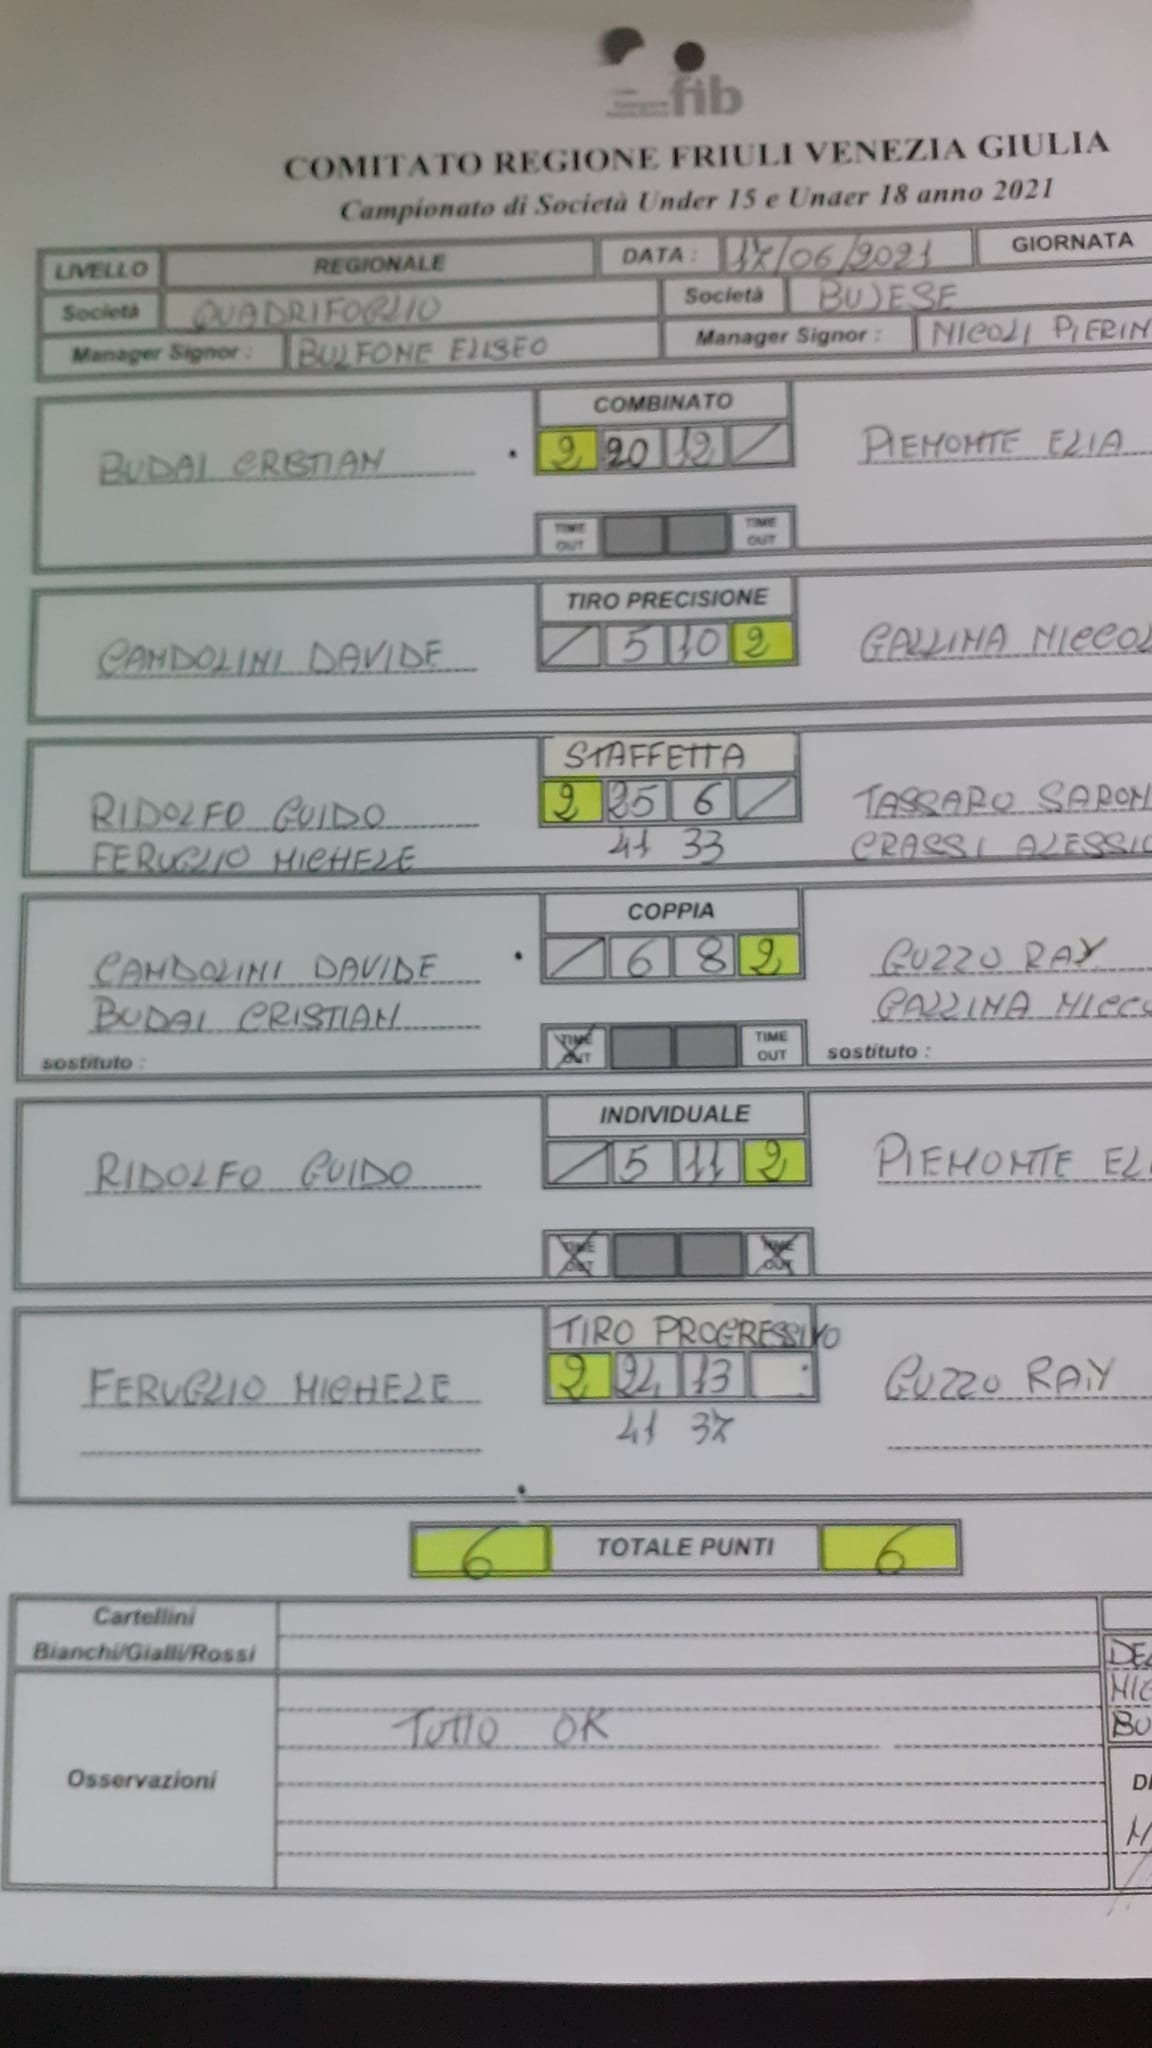 fib
COMITATO REGIONE FRIULI VENEZIA GIULIA
Campionato di Società Under 15 e Under 18 anno 2021
LIVELLO REGIONALE DATA : 17/06/2021 GIORNATA
Società QUADRIFOGLIO Società BUJESE
Manager Signor : BULFONE ELISEO Manager Signor : NICOLI PIERIN
COMBINATO
BUDAI CRISTIAN 2 20 12 / PIEMONTE ELIA
TIME OUT TIME OUT
TIRO PRECISIONE
CANDOLINI DAVIDE / 5 10 2 GALLINA NICCOL
STAFFETTA
RIDOLFO GUIDO 2 25 6 / TASSARO SARON
FERUGLIO MICHELE 41 33 GRASSI ALESSIO
COPPIA
CANDOLINI DAVIDE / 6 8 2 GUZZO RAY
BUDAI CRISTIAN GALLINA NICCO
sostituto : TIME OUT TIME OUT sostituto :
INDIVIDUALE
RIDOLFO GUIDO / 5 11 2 PIEMONTE ELI
TIME OUT TIME OUT
TIRO PROGRESSIVO
FERUGLIO MICHELE 2 24 13 GUZZO RAY
41 37
6 TOTALE PUNTI 6
Cartellini
Bianchi/Gialli/Rossi
DE
NIC
TUTTO OK BU
Osservazioni DI